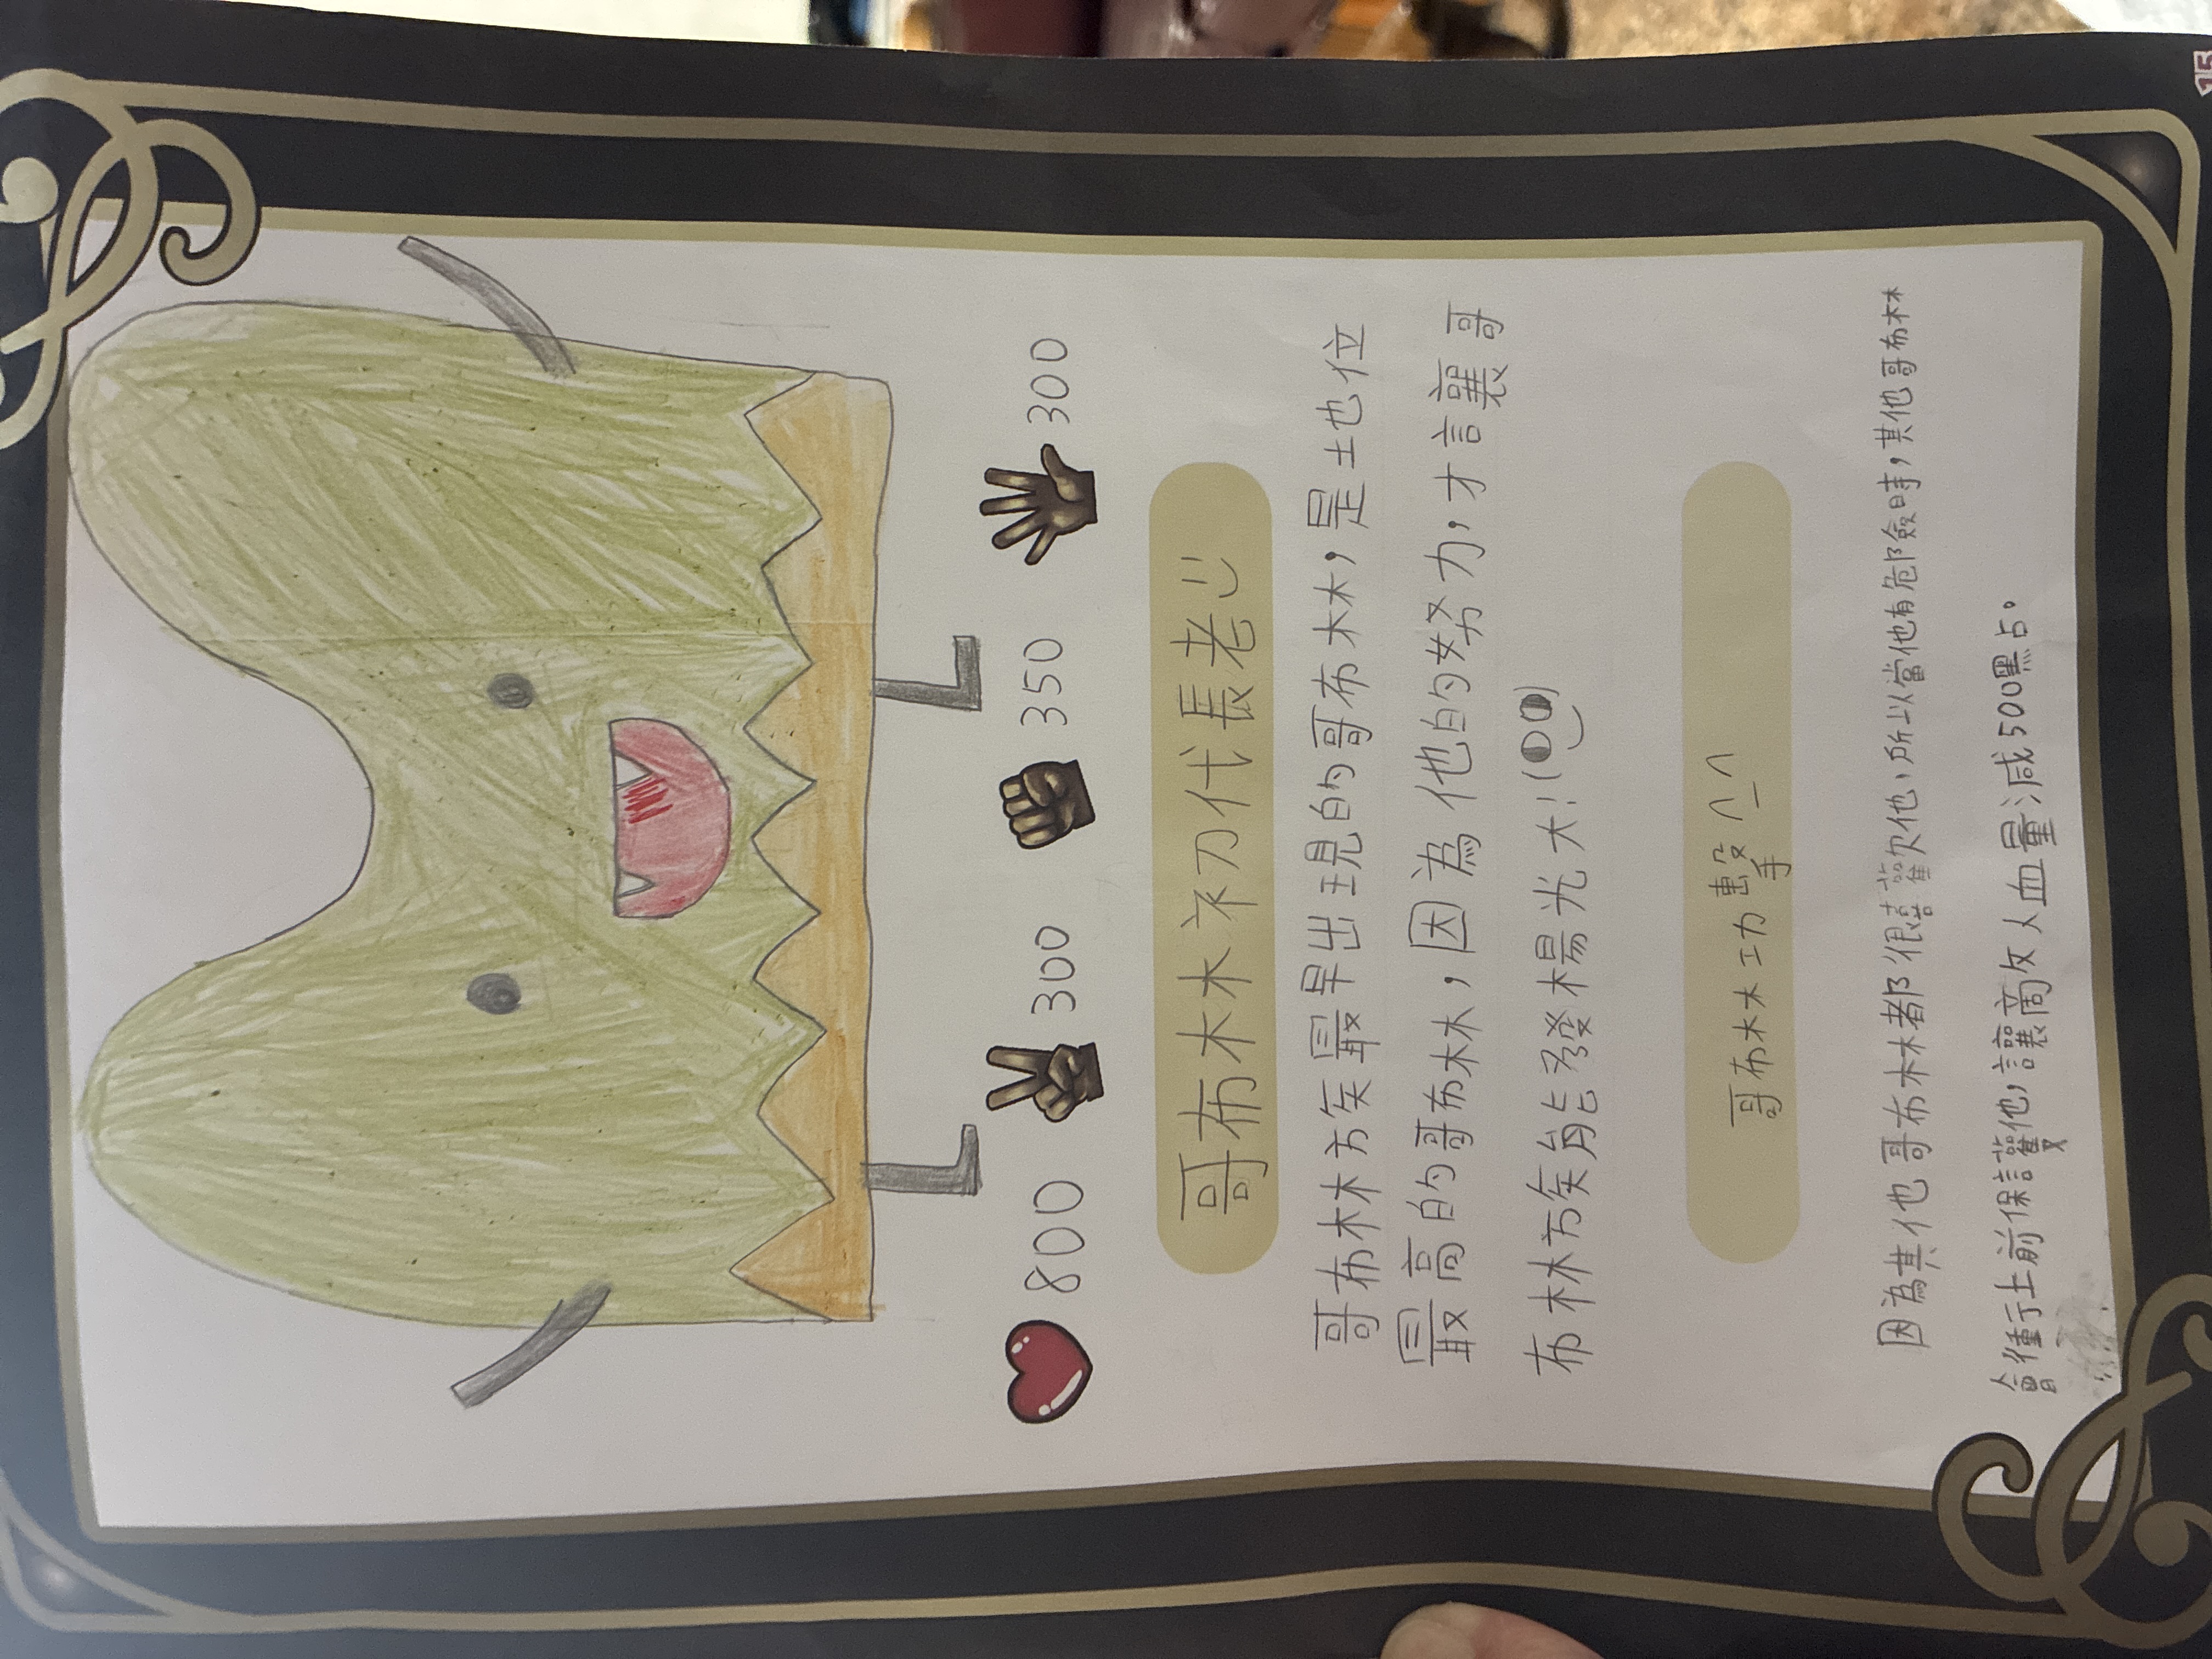 800 300 350 300
哥布林初代長老:)
哥布林族最早出現的哥布林，是地位
最高的哥布林，因為他的努力，才讓哥
布林族能發楊光大!
哥布林功擊^_^
因為其他哥布林都很喜歡他，所以當他有危險時，其他哥布林
會衝上前保護他，讓敵人血量減500點。
15